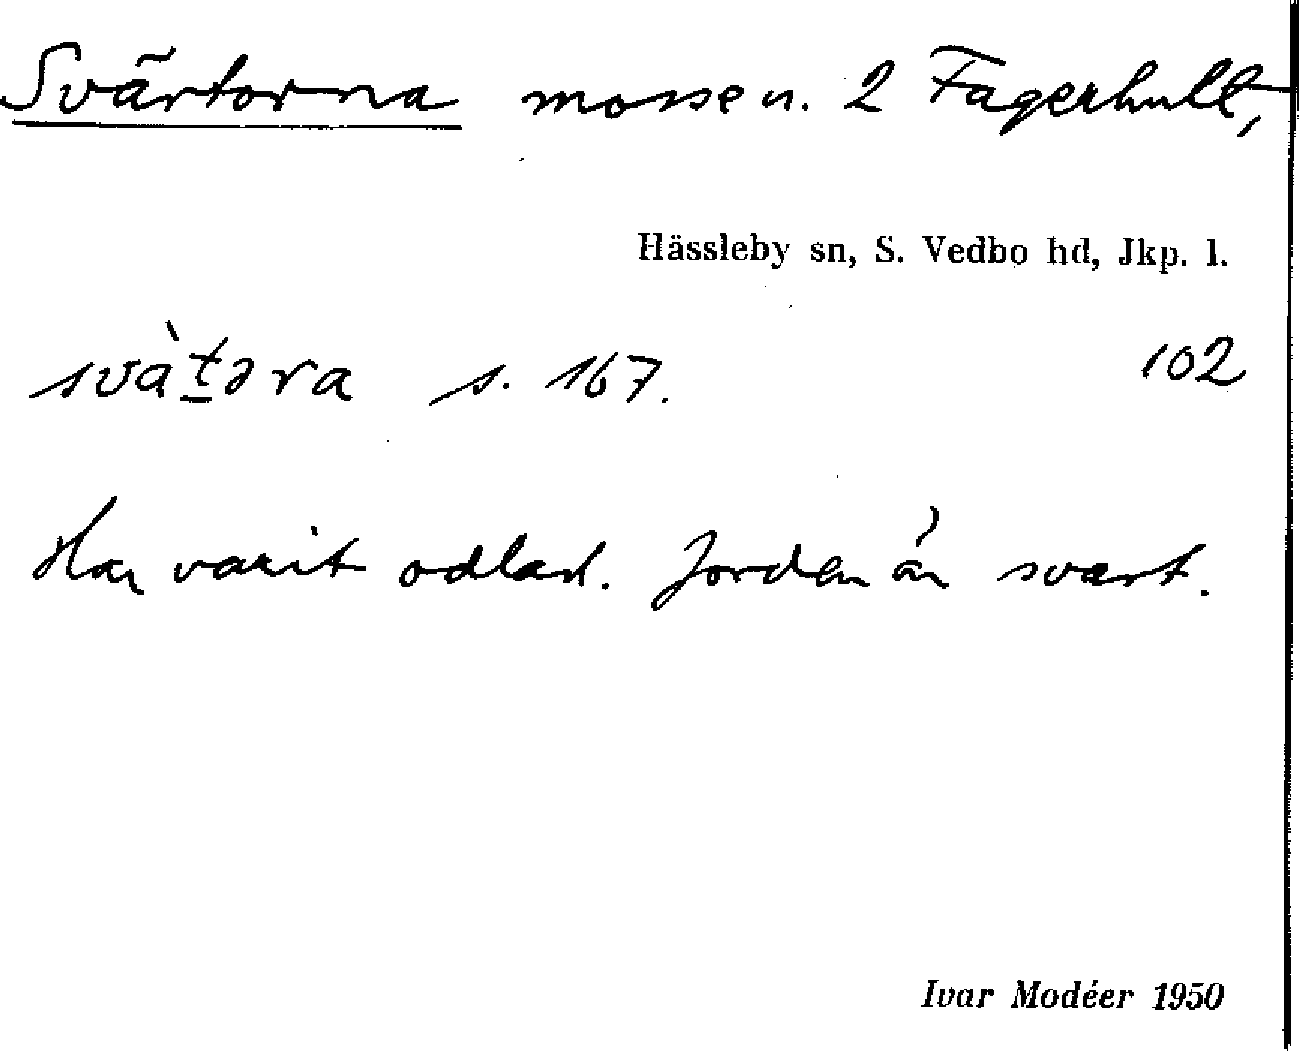 Svärtorna mosse n. 2 Fagerhult,
Hässleby sn, S. Vedbo hd, Jkp. l.
svàt̲əra s. 167. 102
Har varit odlad. Jorden är svart.
Ivar Modéer 1950